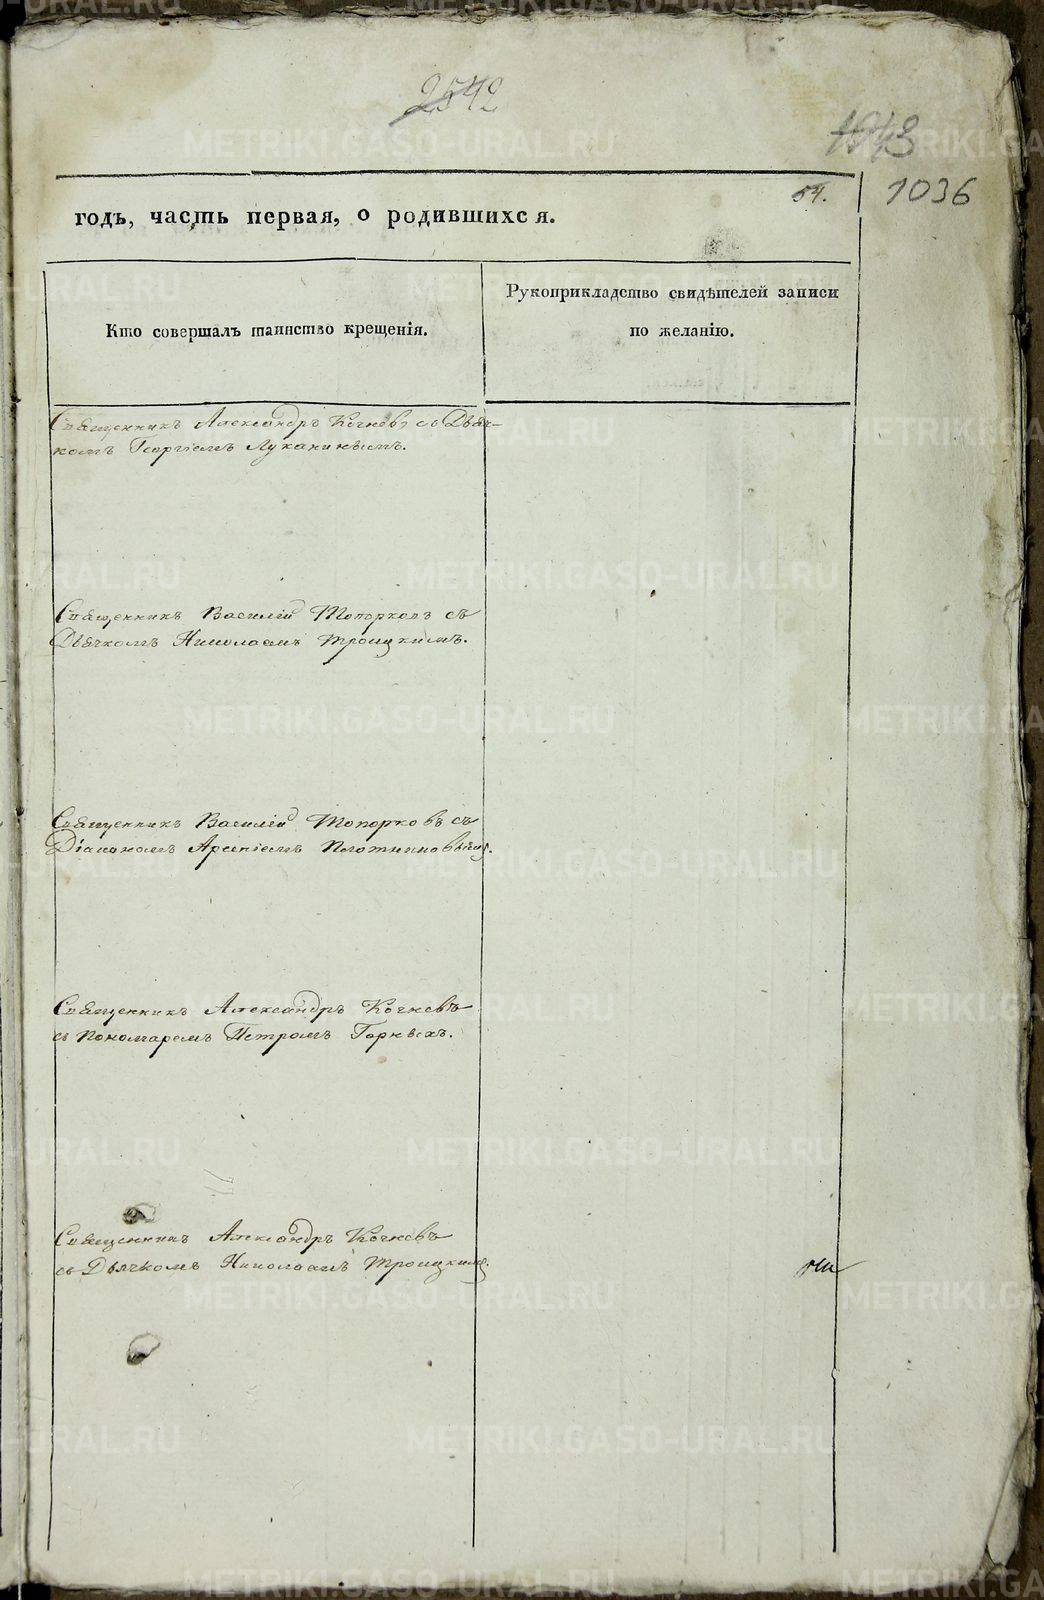 2542
1043
54.
1036
годъ, часть первая, о родившихся.
Кто совершалъ таинство крещенія.
Рукоприкладство свидѣтелей записи
по желанію.
Священникъ Александръ Кочневъ съ Дьяч-
комъ Георгіемъ Луканинымъ.
Священникъ Василій Топорковъ съ
Дьячкомъ Николаемъ Троицкимъ.
Священникъ Василій Топорковъ съ
Діакономъ Арсеніемъ Плотниковымъ.
Священникъ Александръ Кочневъ
съ Пономаремъ Петромъ Горныхъ.
Священникъ Александръ Кочневъ
съ Дьячкомъ Николаемъ Троицкимъ.
METRIKI.GASO-URAL.RU